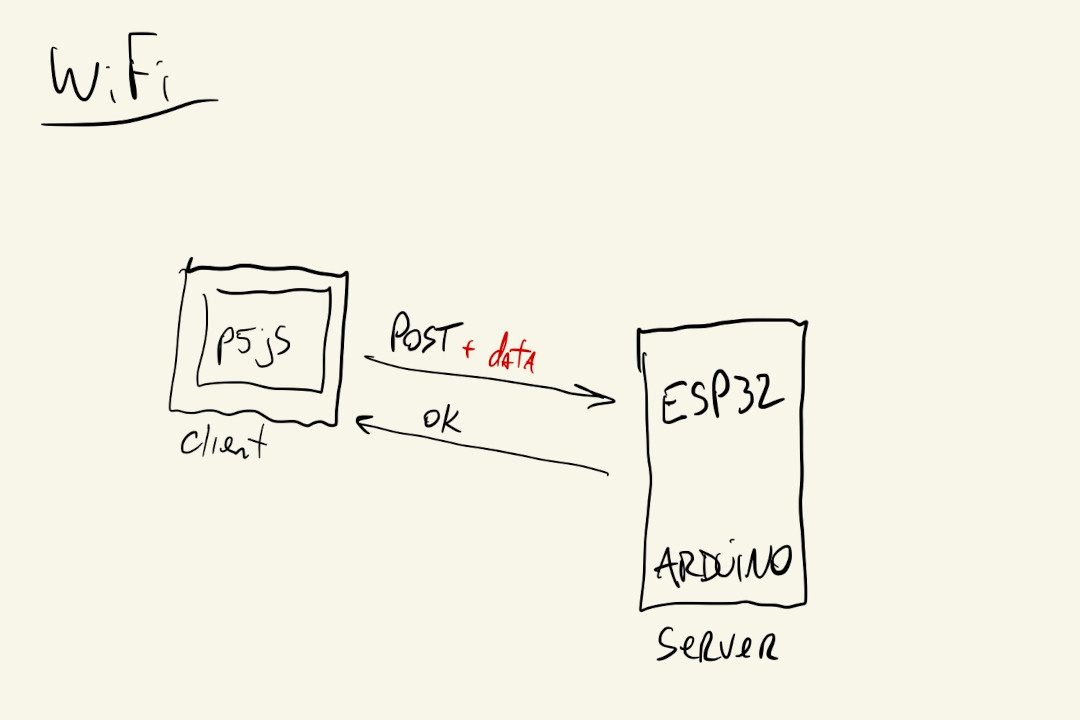 WiFi
p5js
client
POST + data
OK
ESP32
ARDUiNO
SeRVeR